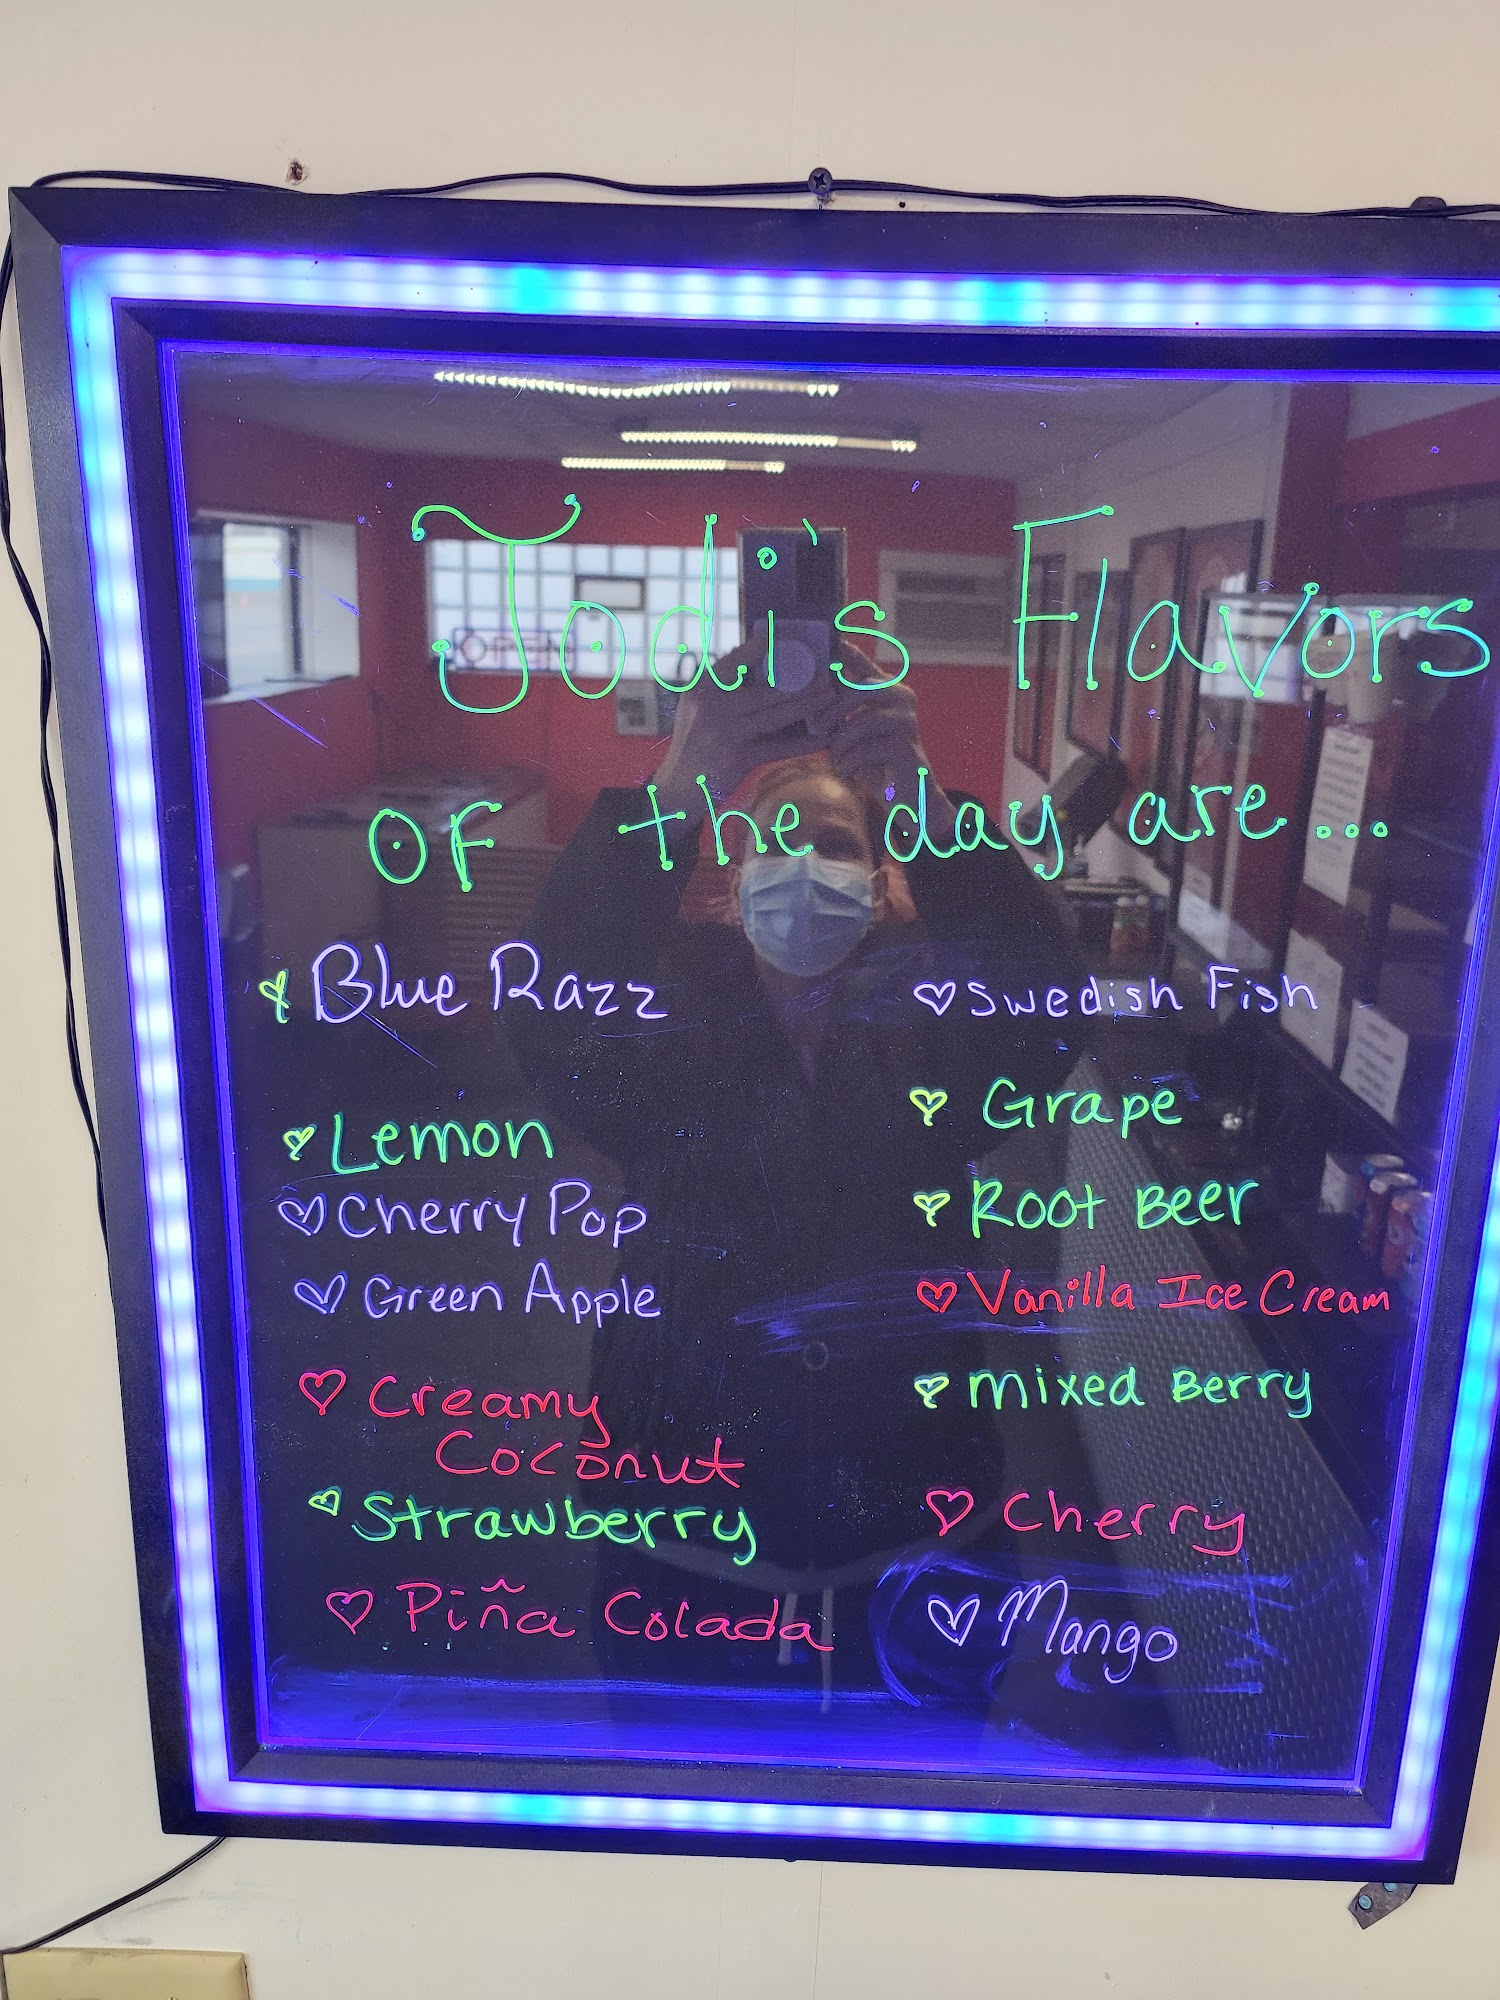 Jodi's Flavors
of the day are...
Blue Razz
Lemon
Cherry Pop
Green Apple
Creamy
Coconut
Strawberry
Piña Colada
Swedish Fish
Grape
Root Beer
Vanilla Ice Cream
mixed Berry
Cherry
Mango